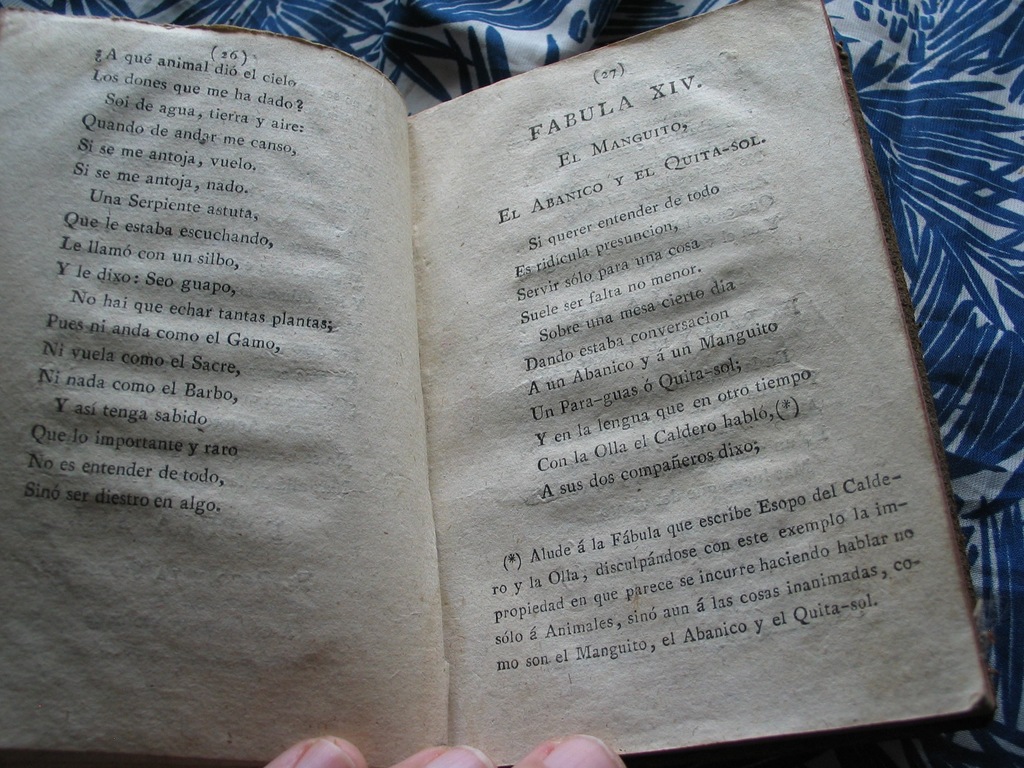 (26)
¿A qué animal dió el cielo
Los dones que me ha dado?
Soi de agua, tierra y aire:
Quando de andar me canso,
Si se me antoja, vuelo.
Si se me antoja, nado.
Una Serpiente astuta,
Que le estaba escuchando,
Le llamó con un silbo,
Y le dixo: Seo guapo,
No hai que echar tantas plantas;
Pues ni anda como el Gamo,
Ni vuela como el Sacre,
Ni nada como el Barbo,
Y así tenga sabido
Que lo importante y raro
No es entender de todo,
Sinó ser diestro en algo.
(27)
FABULA XIV.
EL MANGUITO,
EL ABANICO Y EL QUITA-SOL.
Si querer entender de todo
Es ridícula presuncion,
Servir sólo para una cosa
Suele ser falta no menor.
Sobre una mesa cierto dia
Dando estaba conversacion
A un Abanico y á un Manguito
Un Para-guas ó Quita-sol;
Y en la lengua que en otro tiempo
Con la Olla el Caldero habló,(*)
A sus dos compañeros dixo;
(*) Alude á la Fábula que escribe Esopo del Calde-
ro y la Olla, disculpándose con este exemplo la im-
propiedad en que parece se incurre haciendo hablar no
sólo á Animales, sinó aun á las cosas inanimadas, co-
mo son el Manguito, el Abanico y el Quita-sol.